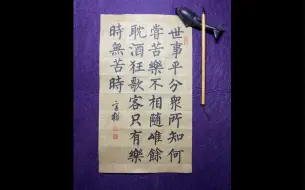 世事平分衆所知何
嘗苦樂不相隨唯餘
耽酒狂歌客只有樂
時無苦時